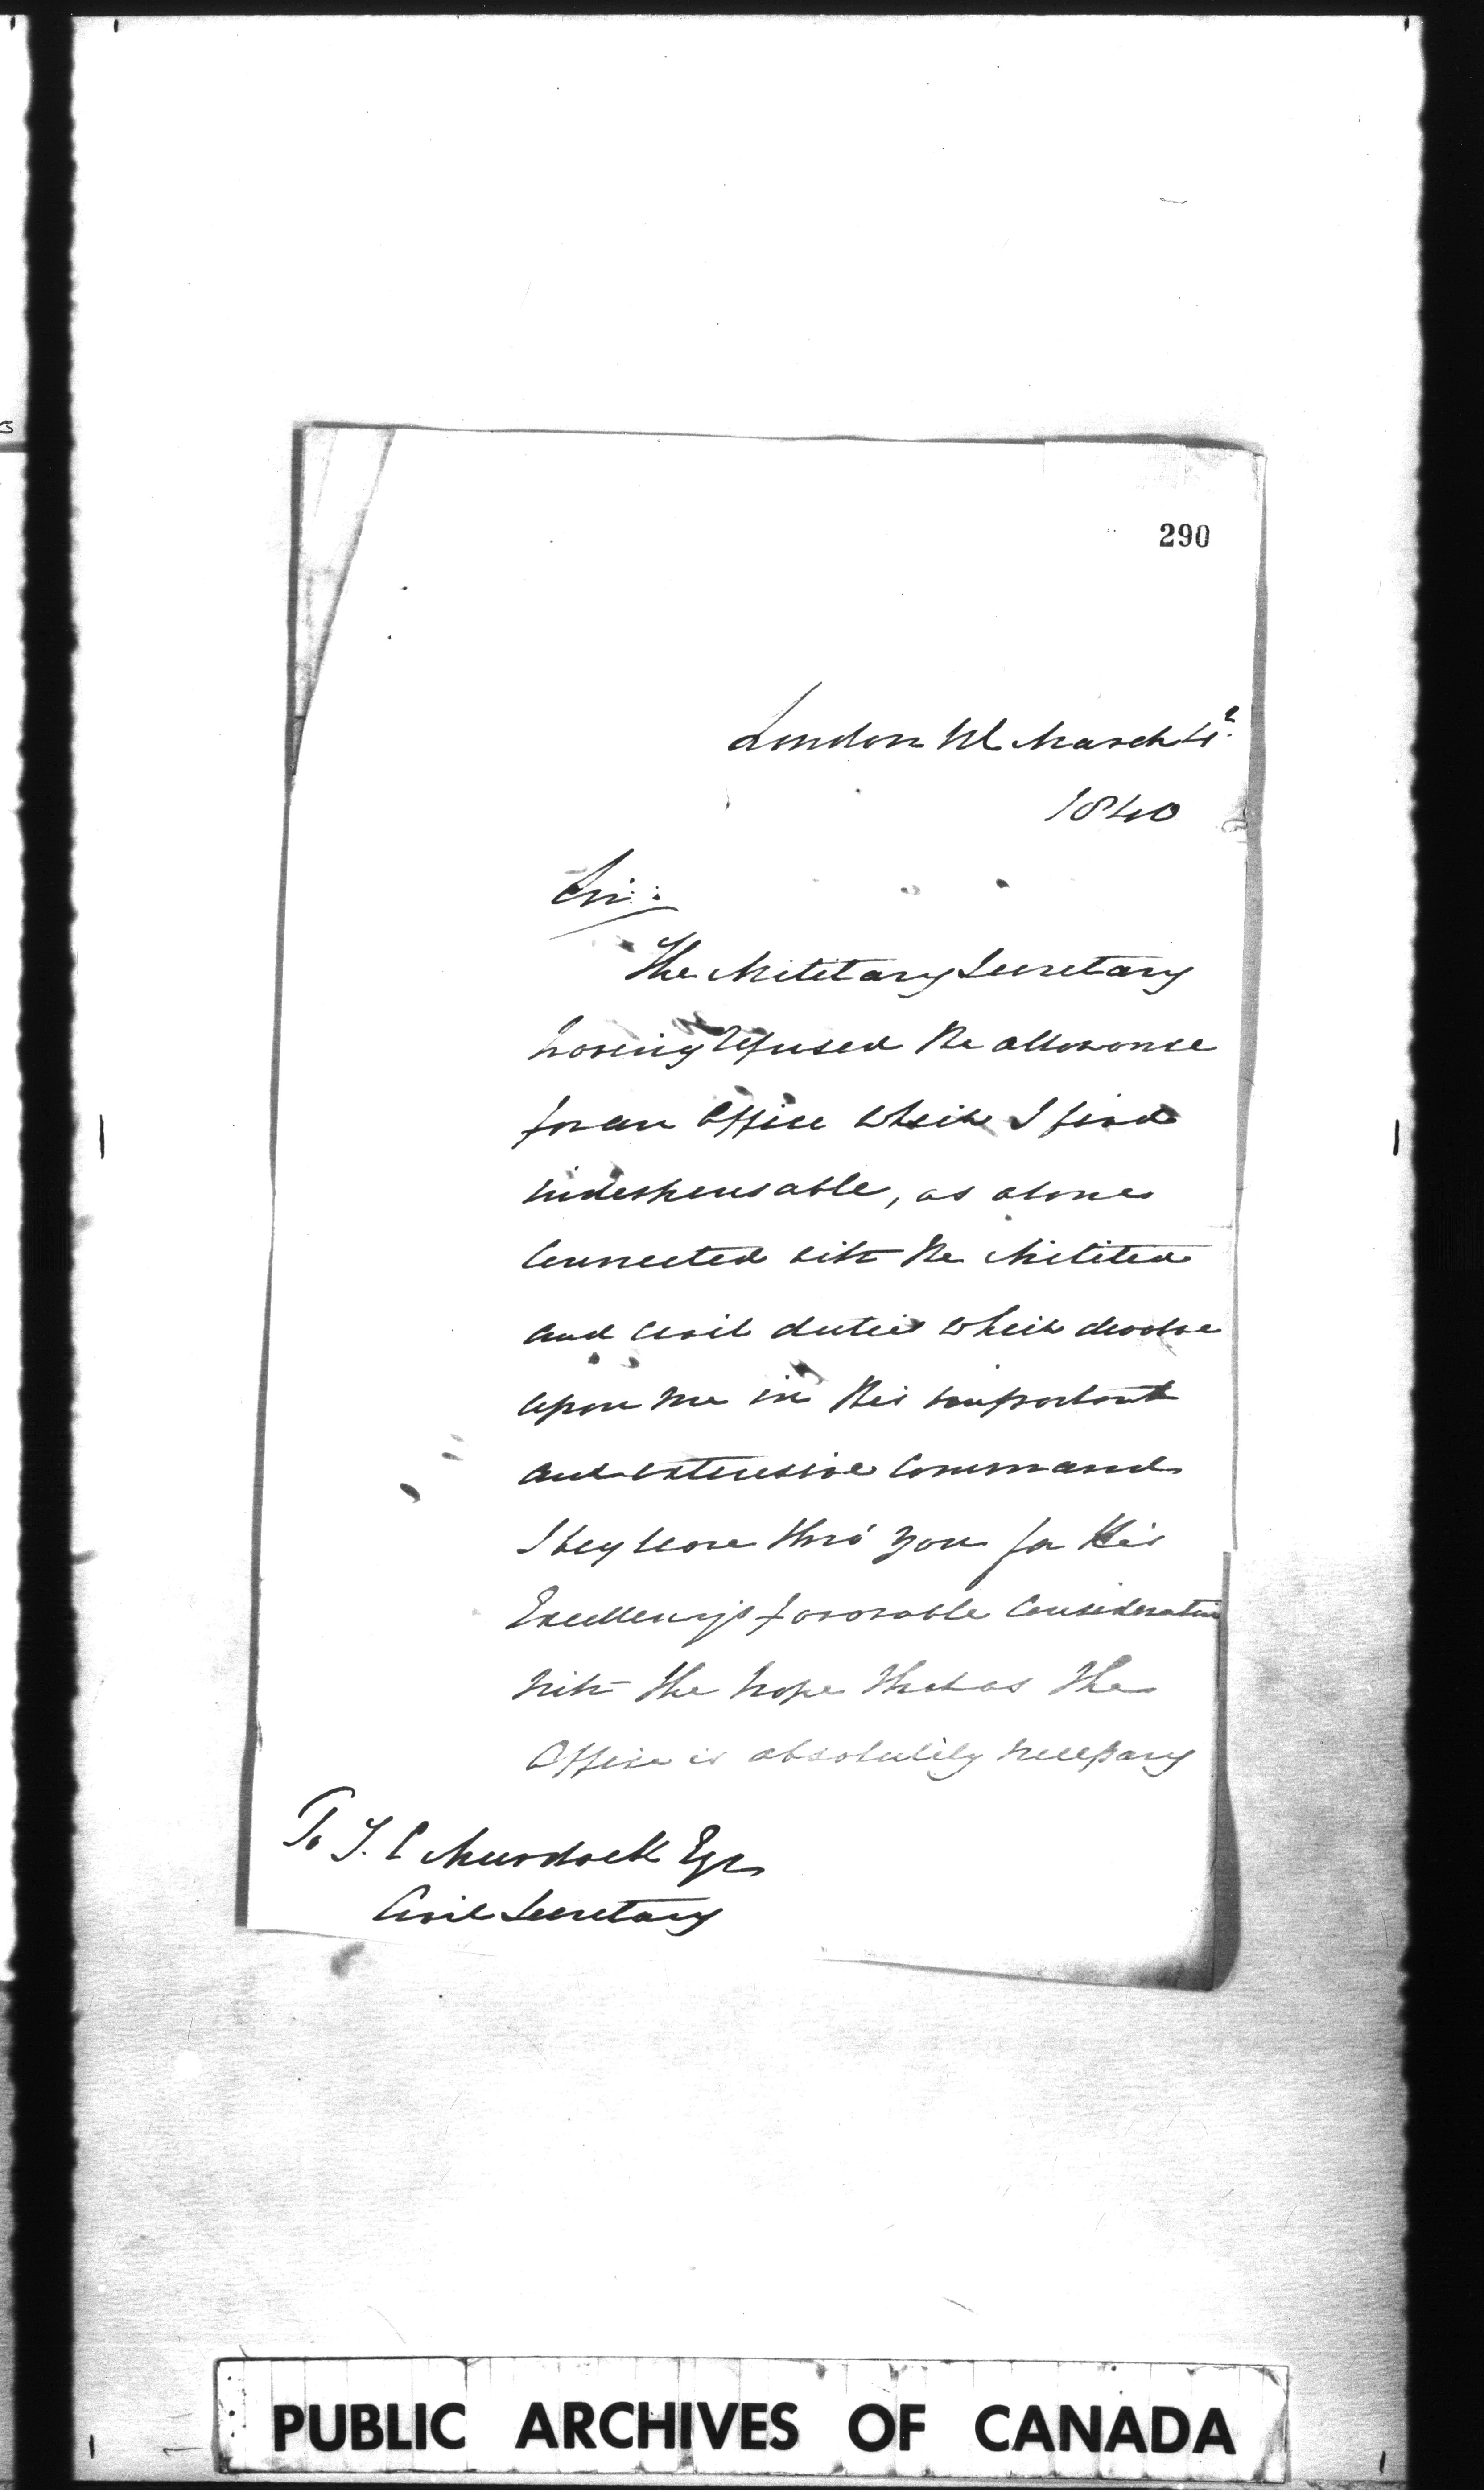 290
London March 4th
1840
Sir:
The Military Secretary
having refused the allowance
for an Office which I find
indespensable, as alone
Connected with the Militia
and Civil duties which devolve
upon me in this important
and extensive Command
I beg leave thro' you for His
Excellency's favorable Consideration
with the hope that as the
Office is absolutely necessary
To T. C Murdock Esqr
Civil Secretary
PUBLIC ARCHIVES OF CANADA